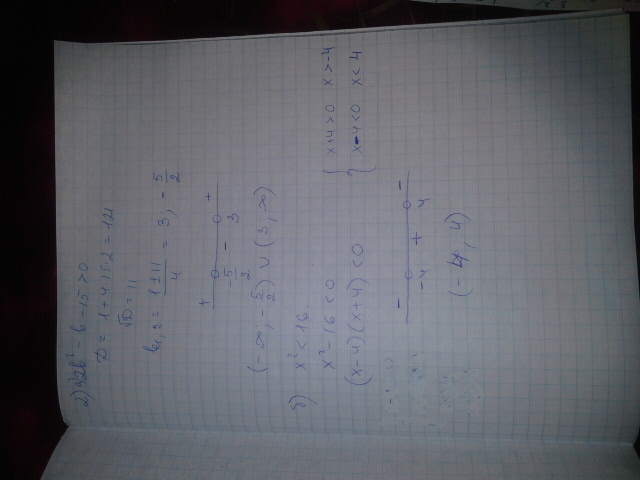 2) 2b² - b - 15 > 0
D = 1 + 4·15·2 = 121
√D = 11
b₁,₂ = (1 ± 11)/4 = 3, -5/2
+ - +
-5/2 3
(-∞, -5/2) ∪ (3, ∞)
б) x² < 16
x² - 16 < 0
(x-4)(x+4) < 0
{ x+4 > 0 x > -4
x-4 < 0 x < 4
- + -
-4 4
(-4, 4)